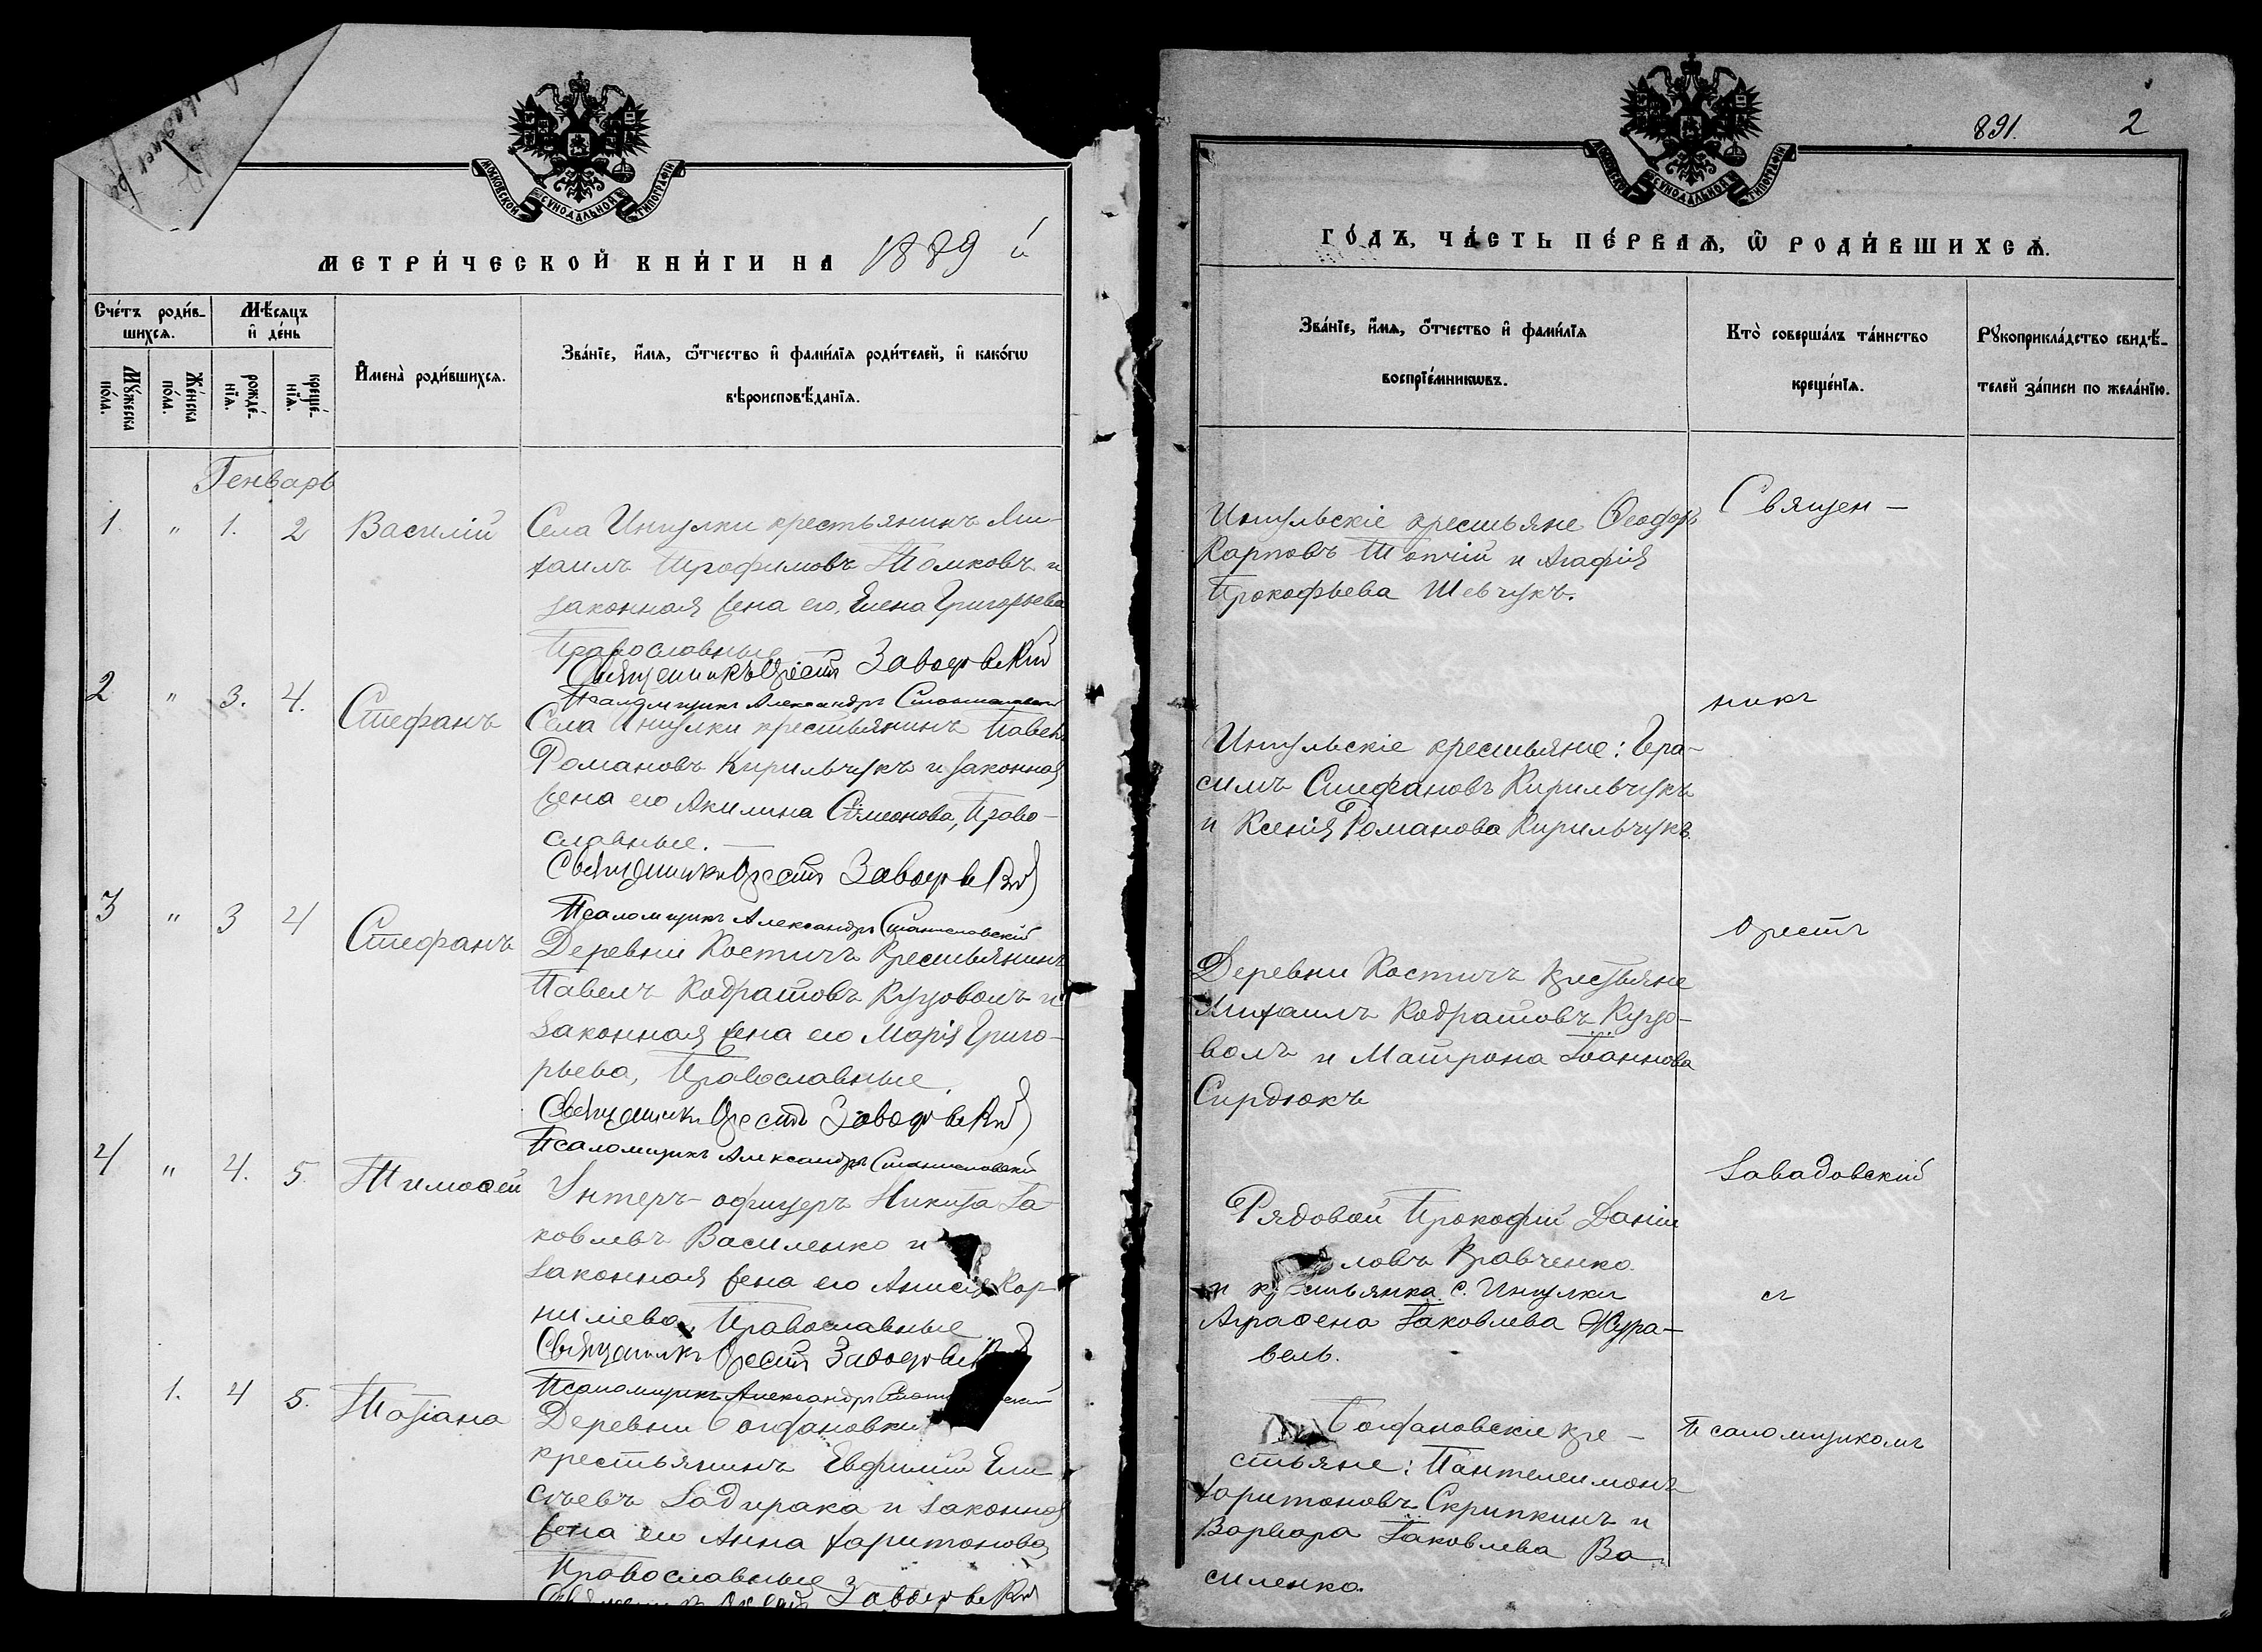 МОСКОВСКОЙ СѴНОДАЛЬНОЙ ТИПОГРАФІИ
МЕТРИ́ЧЕСКОЙ КНИ́ГИ НА 1889 й
Сче́тъ роди́в-
шихсѧ.
Мѣ́сяцъ
и҆ де́нь
Мꙋ́жеска
по́ла.
Же́нска
по́ла.
рожде́-
нїѧ.
креще́-
нїѧ.
И҆мена̀ роди́вшихсѧ.
Зва́нїе, и҆́мѧ, ѻ҆́тчество и҆ фами́лїѧ роди́телей, и҆ како́гѡ
вѣроисповѣ́данїѧ.
Генварь
1. " 1. 2 Василій
Села Ингулки крестьянинъ Ми-
хаилъ Трофимовъ Томковъ и
законная жена его, Елена Григорьева
Православные
Священникъ Орестъ Завадовскій
Псаломщикъ Александръ Станиславскій
2 " 3. 4. Стефанъ
Села Ингулки крестьянинъ Павелъ
Романовъ Кирильчукъ и законная
жена его Акилина Симеонова, Право-
славные.
Священникъ Орестъ Завадовскій
Псаломщикъ Александръ Станиславскій
3 " 3 4 Стефанъ
Деревни Костичъ Крестьянинъ
Павелъ Кодратовъ Куцоволъ и
законная жена его Марія Григо-
рьева, Православные.
Священникъ Орестъ Завадовскій
Псаломщикъ Александръ Станиславскій
4 " 4. 5. Тимоѳей
Унтеръ-офицеръ Никита Іа-
ковлевъ Василенко и
законная жена его Анисія Кор-
нилiева, Православные
Священникъ Орестъ
Псаломщикъ Александръ
1. 4 5. Татіана
Деревни Богдановки
крестьянинъ Евфимій Ели-
сѣевъ Задирака и законная
жена его Анна Харитонова,
Православные
Священникъ Орестъ Завадовскій
891. 2
МОСКОВСКОЙ СѴНОДАЛЬНОЙ ТИПОГРАФІИ
ГО́ДЪ, ЧА́СТЬ ПЕ́РВАѦ, Ѽ РОДИ́ВШИХСѦ.
Зва́нїе, и҆́мѧ, ѻ҆́тчество и҆ фами́лїѧ
воспрїе́мникѡвъ.
Кто̀ соверша́лъ та́инство
креще́нїѧ.
Рꙋкоприкла́дство свидѣ́-
телей за́писи по жела́нїю.
Ингульскіе крестьяне Ѳеодоръ
Карповъ Топчій и Агафія
Прокофьева Шевчукъ.
Священ-
Ингульскіе крестьяне: Гера-
симъ Стефановъ Кирильчукъ
и Ксенія Романова Кирильчукъ.
никъ
Деревни Костичъ крестьяне
Михаилъ Кодратовъ Куцо-
волъ и Матрона Іоаннова
Сирдюкъ
Орестъ
Рядовой Прокофій Даніи
ловъ Кравченко
и крестьянка с. Ингулки
Аграфена Іаковлева Жура-
вель.
Завадовскій
съ
Богдановскіе кре-
стьяне: Пантелеимонъ
Харитоновъ Скрипкинъ и
Варвара Іаковлева Ва-
силенко.
Псаломщикомъ